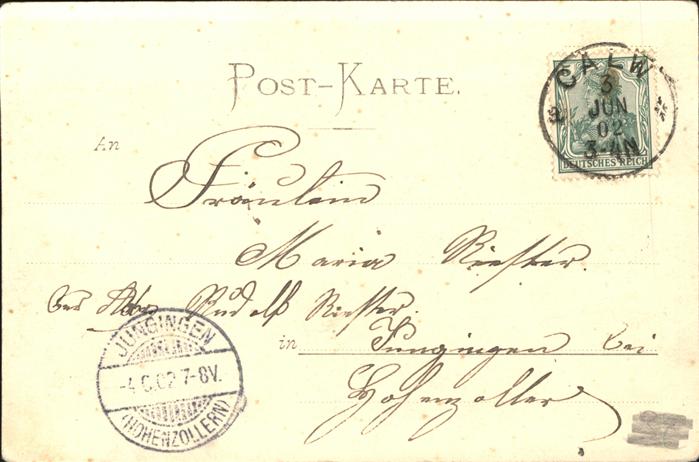 POST-KARTE.
CALW
3
JUN
02
3-4N
DEUTSCHES REICH
An
Fräulein
Maria Riester.
Rudolf Riester.
in Jungingen bei
Hohenzollern
JUNGINGEN
-4.6.02 7-8V.
(HOHENZOLLERN)